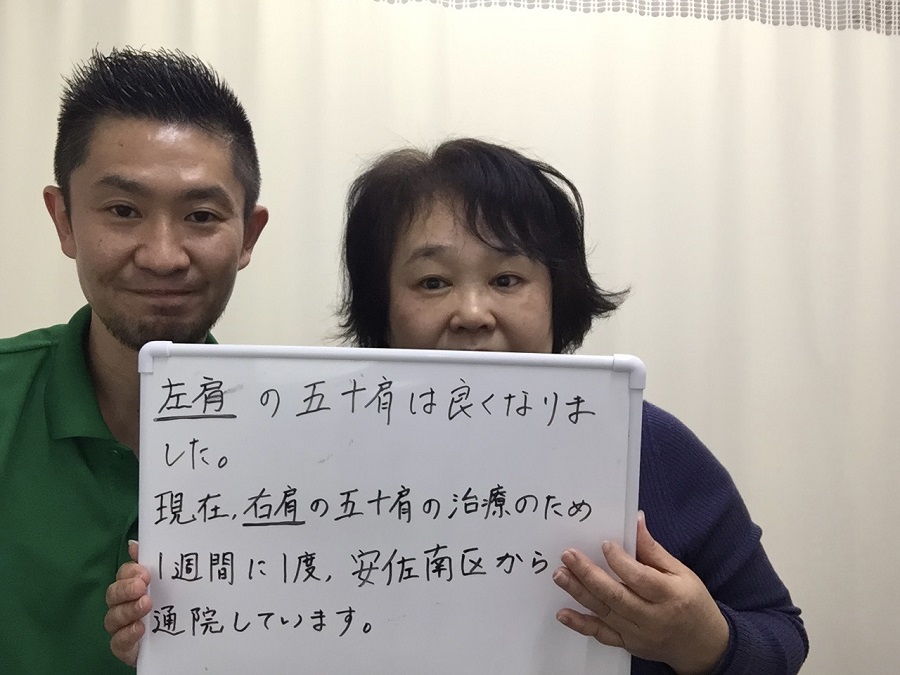 左肩の五十肩は良くなりま
した。
現在,右肩の五十肩の治療のため
1週間に1度,安佐南区から
通院しています。